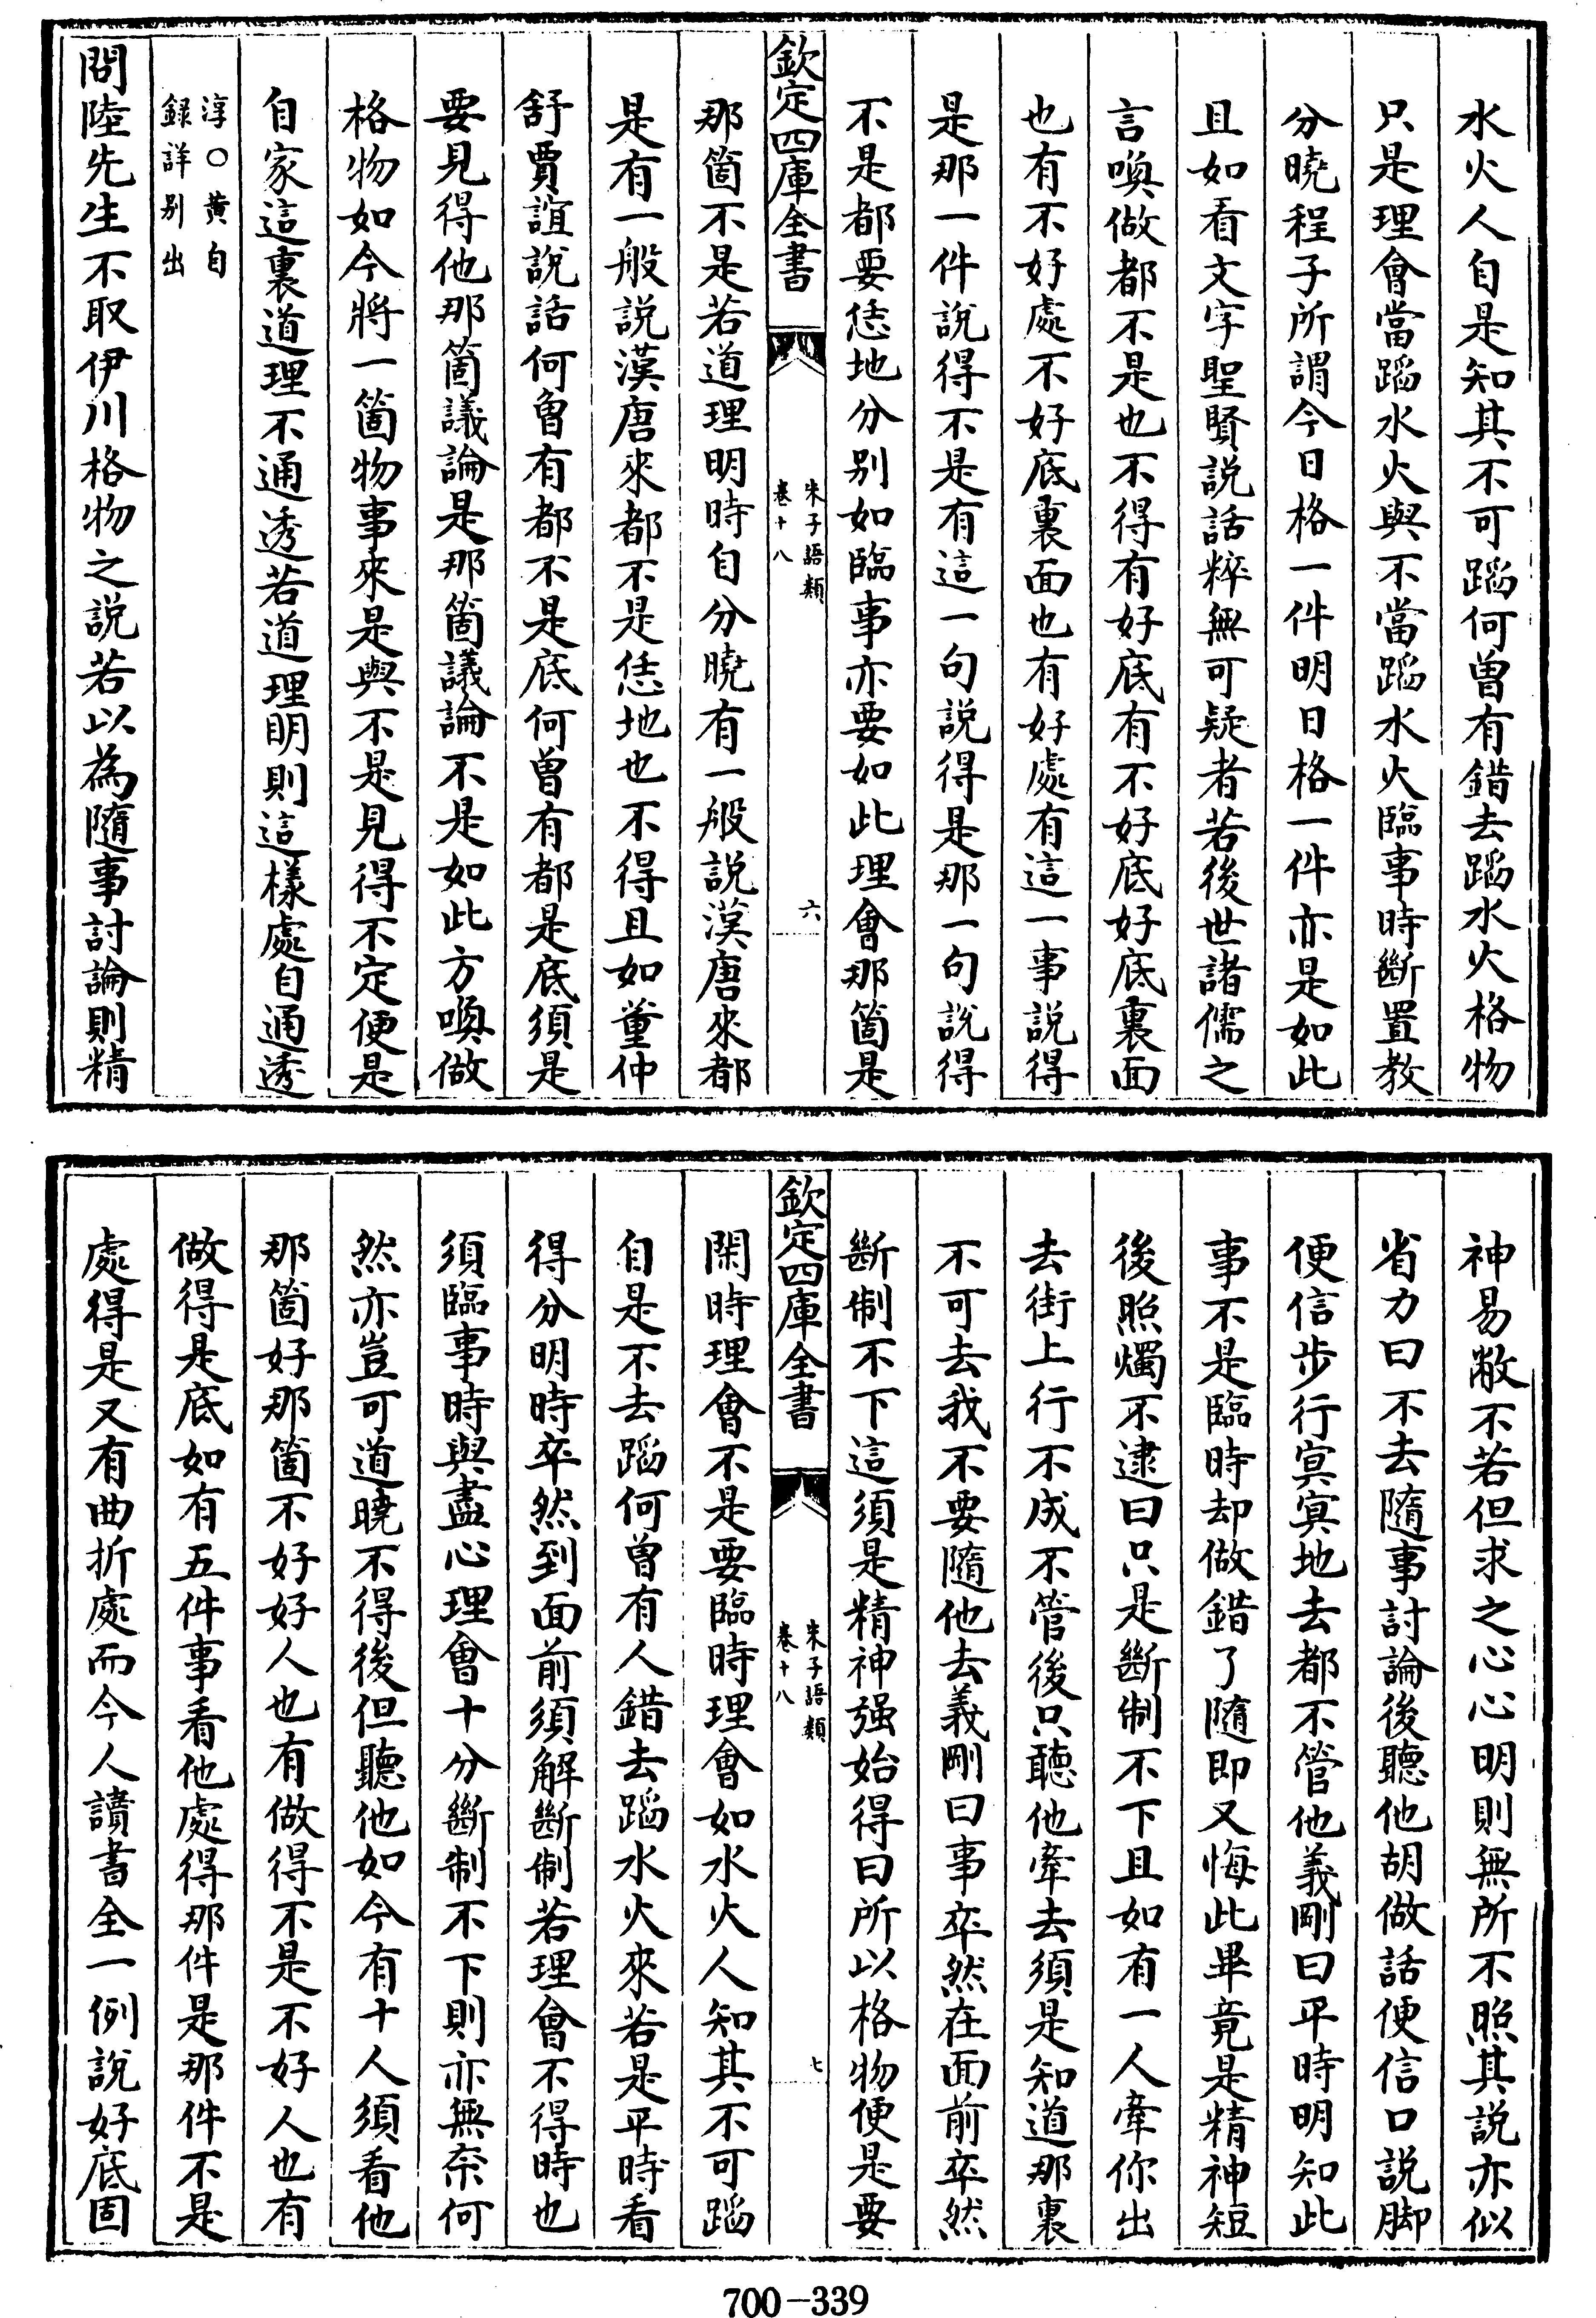 水火人自是知其不可蹈何曽有錯去蹈水火格物
只是理會當蹈水火與不當蹈水火臨事時斷置教
分曉程子所謂今日格一件明日格一件亦是如此
且如看文字聖賢説話粹無可疑者若後世諸儒之
言喚做都不是也不得有好底有不好底好底裏面
也有不好處不好底裏面也有好處有這一事説得
是那一件説得不是有這一句説得是那一句説得
不是都要恁地分别如臨事亦要如此理會那箇是
欽定四庫全書
朱子語類
卷十八
六
那箇不是若道理明時自分曉有一般說漢唐來都
是有一般說漢唐來都不是恁地也不得且如董仲
舒賈誼說話何曽有都不是底何曽有都是底須是
要見得他那箇議論是那箇議論不是如此方喚做
格物如今將一箇物事來是與不是見得不定便是
自家這裏道理不通透若道理明則這樣處自通透
淳○黄自
録詳别出
問陸先生不取伊川格物之説若以為隨事討論則精
神易敝不若但求之心心明則無所不照其説亦似
省力曰不去隨事討論後聽他胡做話便信口説脚
便信步行冥冥地去都不管他義剛曰平時明知此
事不是臨時却做錯了隨即又悔此畢竟是精神短
後照燭不逮曰只是斷制不下且如有一人牽你出
去街上行不成不管後只聽他牽去須是知道那裏
不可去我不要隨他去義剛曰事卒然在面前卒然
斷制不下這須是精神强始得曰所以格物便是要
欽定四庫全書
朱子語類
卷十八
七
閑時理會不是要臨時理會如水火人知其不可蹈
自是不去蹈何曽有人錯去蹈水火來若是平時看
得分明時卒然到面前須解斷制若理會不得時也
須臨事時與盡心理會十分斷制不下則亦無奈何
然亦豈可道曉不得後但聽他如今有十人須看他
那箇好那箇不好好人也有做得不是不好人也有
做得是底如有五件事看他處得那件是那件不是
處得是又有曲折處而今人讀書全一例說好底固
700-339